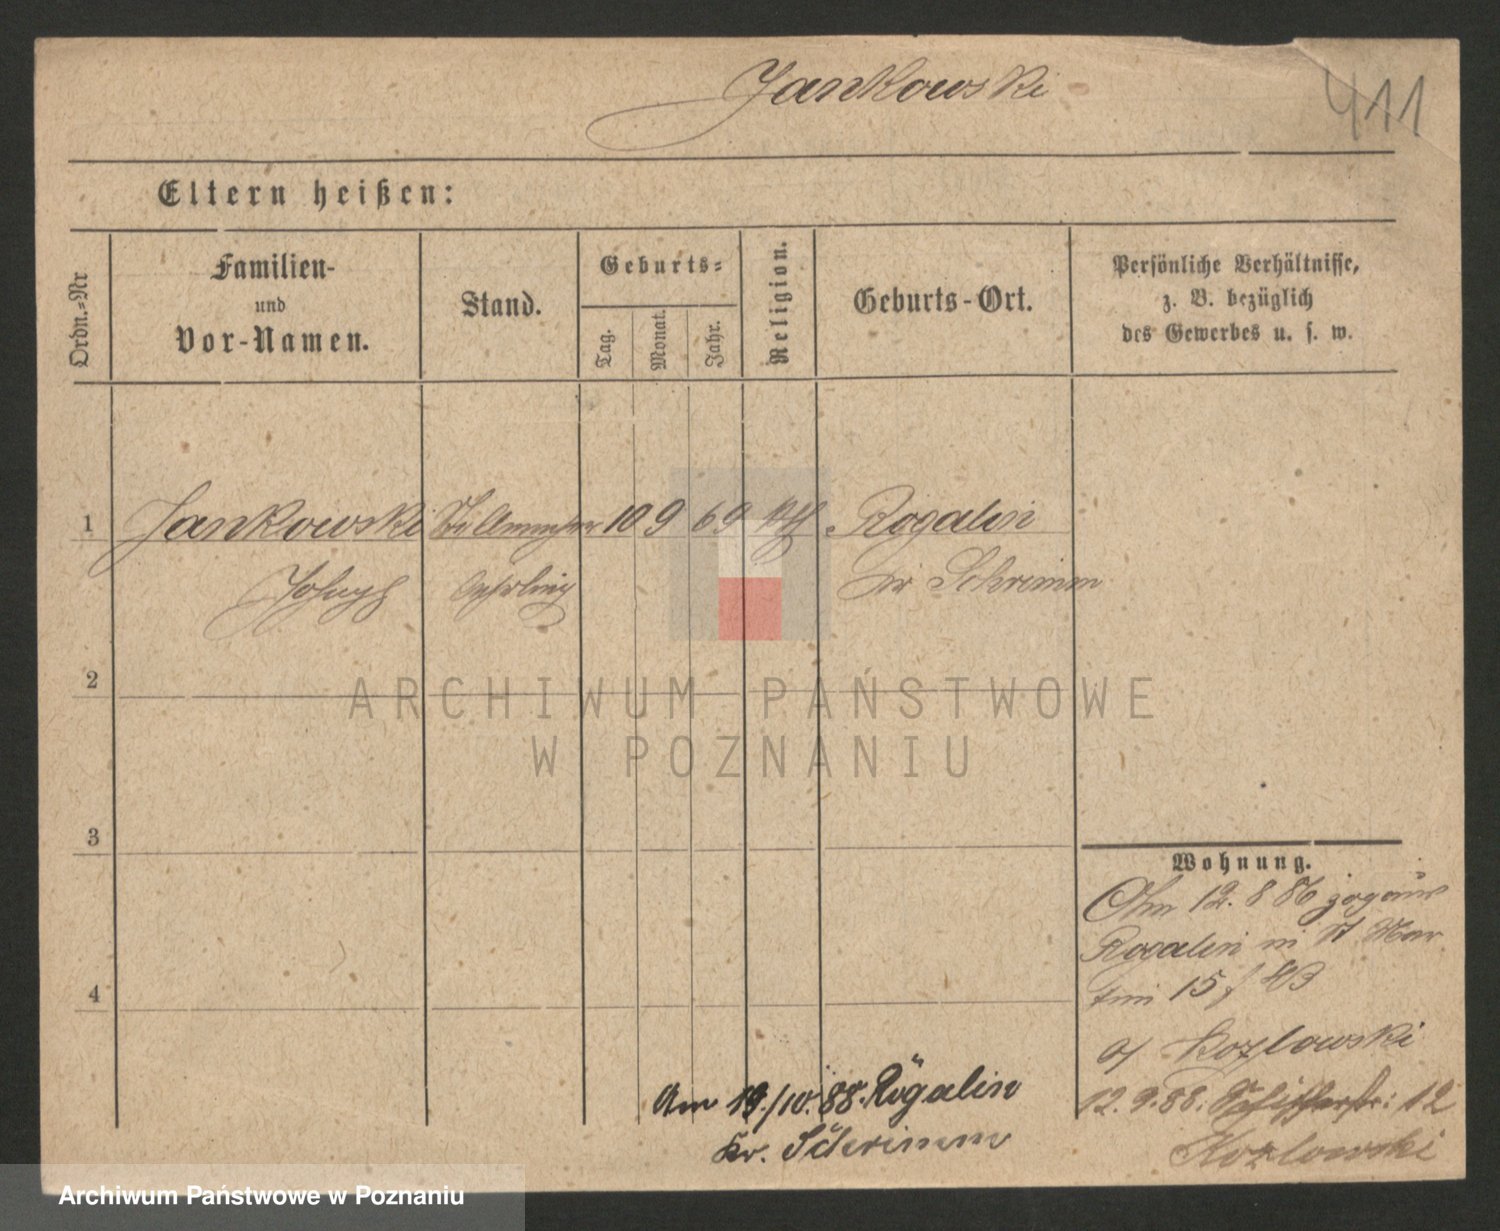 Jankowski
411
Eltern heißen:
Ordn.-Nr
Familien-
und
Vor-Namen.
Stand.
Geburts-
Tag.
Monat.
Jahr.
Religion.
Geburts-Ort.
Persönliche Verhältnisse,
z. B. bezüglich
des Gewerbes u. s. w.
1 Jankowski 10 9 69 Rogalin
Joseph Kr Schrimm
2
3
4
Wohnung.
Am 12. 8 86 zog aus
Rogalin in St Mar
tin 15 / 83
a/ Kozlowski
12. 9. 88. 12
Kozlowski
Am 19./10. 88. Rogalin
Kr. Schrimm
ARCHIWUM PAŃSTWOWE
W POZNANIU
Archiwum Państwowe w Poznaniu